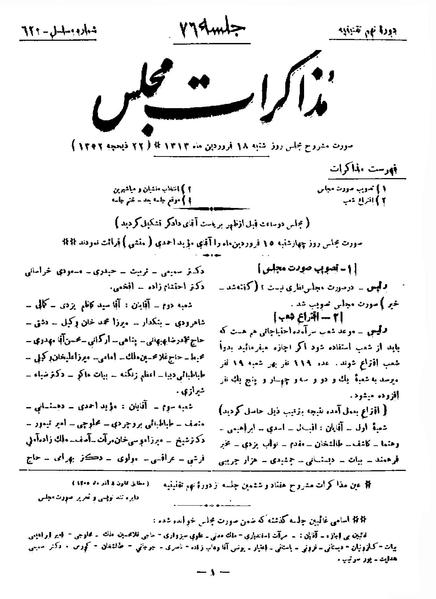 دورهٔ نهم تقنینیه
جلسه ۷۶
شماره مسلسل - ۶۲۰
مذاکرات مجلس
صورت مشروح مجلس روز شنبه ۱۸ فروردین ماه ۱۳۱۳ * (۲۲ ذیحجه ۱۳۵۲)
فهرست مذاکرات
۱) تصویب صورت مجلس
۲) اقتراع شعب
۳) انتخاب منشیان و مباشرین
۴) موقع جلسه بعد - ختم جلسه
(مجلس دو ساعت قبل از ظهر بریاست آقای دادگر تشکیل گردید)
صورت مجلس روز چهارشنبه ۱۵ فروردین ماه را آقای مؤید احمدی (منشی) قرائت نمودند **
[۱- تصویب صورت مجلس]
رئیس - در صورت مجلس نظری نیست؟ (گفته شد -
خیر) صورت مجلس تصویب شد.
[۲- اقتراع شعب]
رئیس - موعد شعب سر آمده احتیاجاتی هم هست که
باید از شعب استفاده شود اگر اجازه میفرمائید بدواً
شعب اقتراع شوند. عده ۱۱۹ نفر بهر شعبه ۱۹ نفر
میرسد به شعبهٔ یک و دو و سه و چهار و پنج یک نفر
افزوده میشود.
(اقتراع بعمل آمده نتیجه بترتیب ذیل حاصل گردید)
شعبهٔ اول - آقایان: اقبال - اسدی - ابراهیمی -
رهنما - کاشف - طالشخان - مقدم - نواب یزدی - مخبر
فرهمند - بیات - دبستانی - جمشیدی - هزار جریبی
دکتر سمیعی - تربیت - حیدری - مسعودی خراسانی
دکتر احتشام زاده - افخمی.
شعبه دوم - آقایان: آقا سید کاظم یزدی - کمالی -
شاهرودی - بنکدار - میرزا محمد خان وکیل - دشتی -
حاج محمد رضا بهبهانی - پناهی - ارگانی - محسن آقا مهدوی -
محیط - حاج غلامحسین ملک - امامی - میرزا علیخان وکیل -
طباطبائی دیبا - اعظم زنگنه - بیات ماکو - دکتر ضیاء -
شیرازی.
شعبه سوم - آقایان: مؤید احمدی - دهستانی -
منصف - طباطبائی بروجردی - مخلوجی - امیر تیمور -
دکتر شیخ - میرزا موسی خان مرآت - آصف - ملک زاده آملی
قرشی - عراقی - مولوی - دکتر بهرامی - حاج
* عین مذاکرات مشروح هفتاد و ششمین جلسه از دورهٔ نهم تقنینیه
(مطابق قانون ۸ آذر ماه ۱۳۰۵)
دایره تند نویسی و تحریر صورت مجلس
** اسامی غائبین جلسه گذشته که ضمن صورت مجلس خوانده شده:
هدایت - پور سرتیپ.
- ۱ -